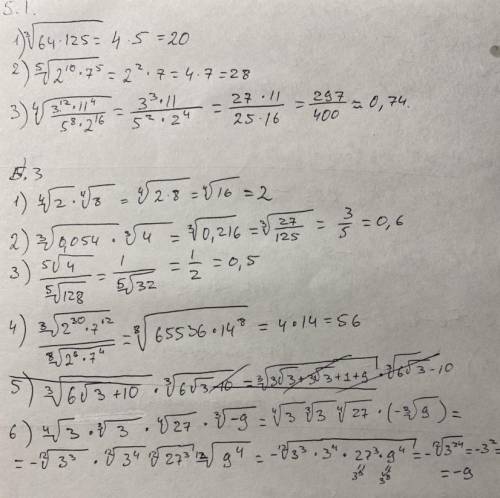 5.1.
1) ∛(64·125) = 4·5 = 20
2) ⁵√(2¹⁰·7⁵) = 2²·7 = 4·7 = 28
3) ⁴√((3¹²·11⁴)/(5⁸·2¹⁶)) = (3³·11)/(5²·2⁴) = (27·11)/(25·16) = 297/400 ≈ 0,74.
5.3
1) ⁴√2 · ⁴√8 = ⁴√(2·8) = ⁴√16 = 2
2) ∛0,054 · ∛4 = ∛0,216 = ∛(27/125) = 3/5 = 0,6
3) ⁵√4/⁵√128 = 1/⁵√32 = 1/2 = 0,5
4) ∛(2³⁰·7¹²)/⁸√(2⁸·7⁴) = ⁸√(65536·14⁸) = 4·14 = 56
5) ∛(6√3+10) · ∛(6√3-10) = ∛(3√3+9√3+1+9) · ∛(6√3-10)
6) ⁴√3 · ∛3 · ⁴√27 · ∛-9 = ⁴√3 ∛3 ⁴√27 · (-∛9) =
= -¹²√3³ · ¹²√3⁴ ¹²√27³ ¹²√9⁴ = -¹²√(3³·3⁴·27³·9⁴) = -¹²√3²⁴ = -3² =
3⁹ 3⁸ = -9